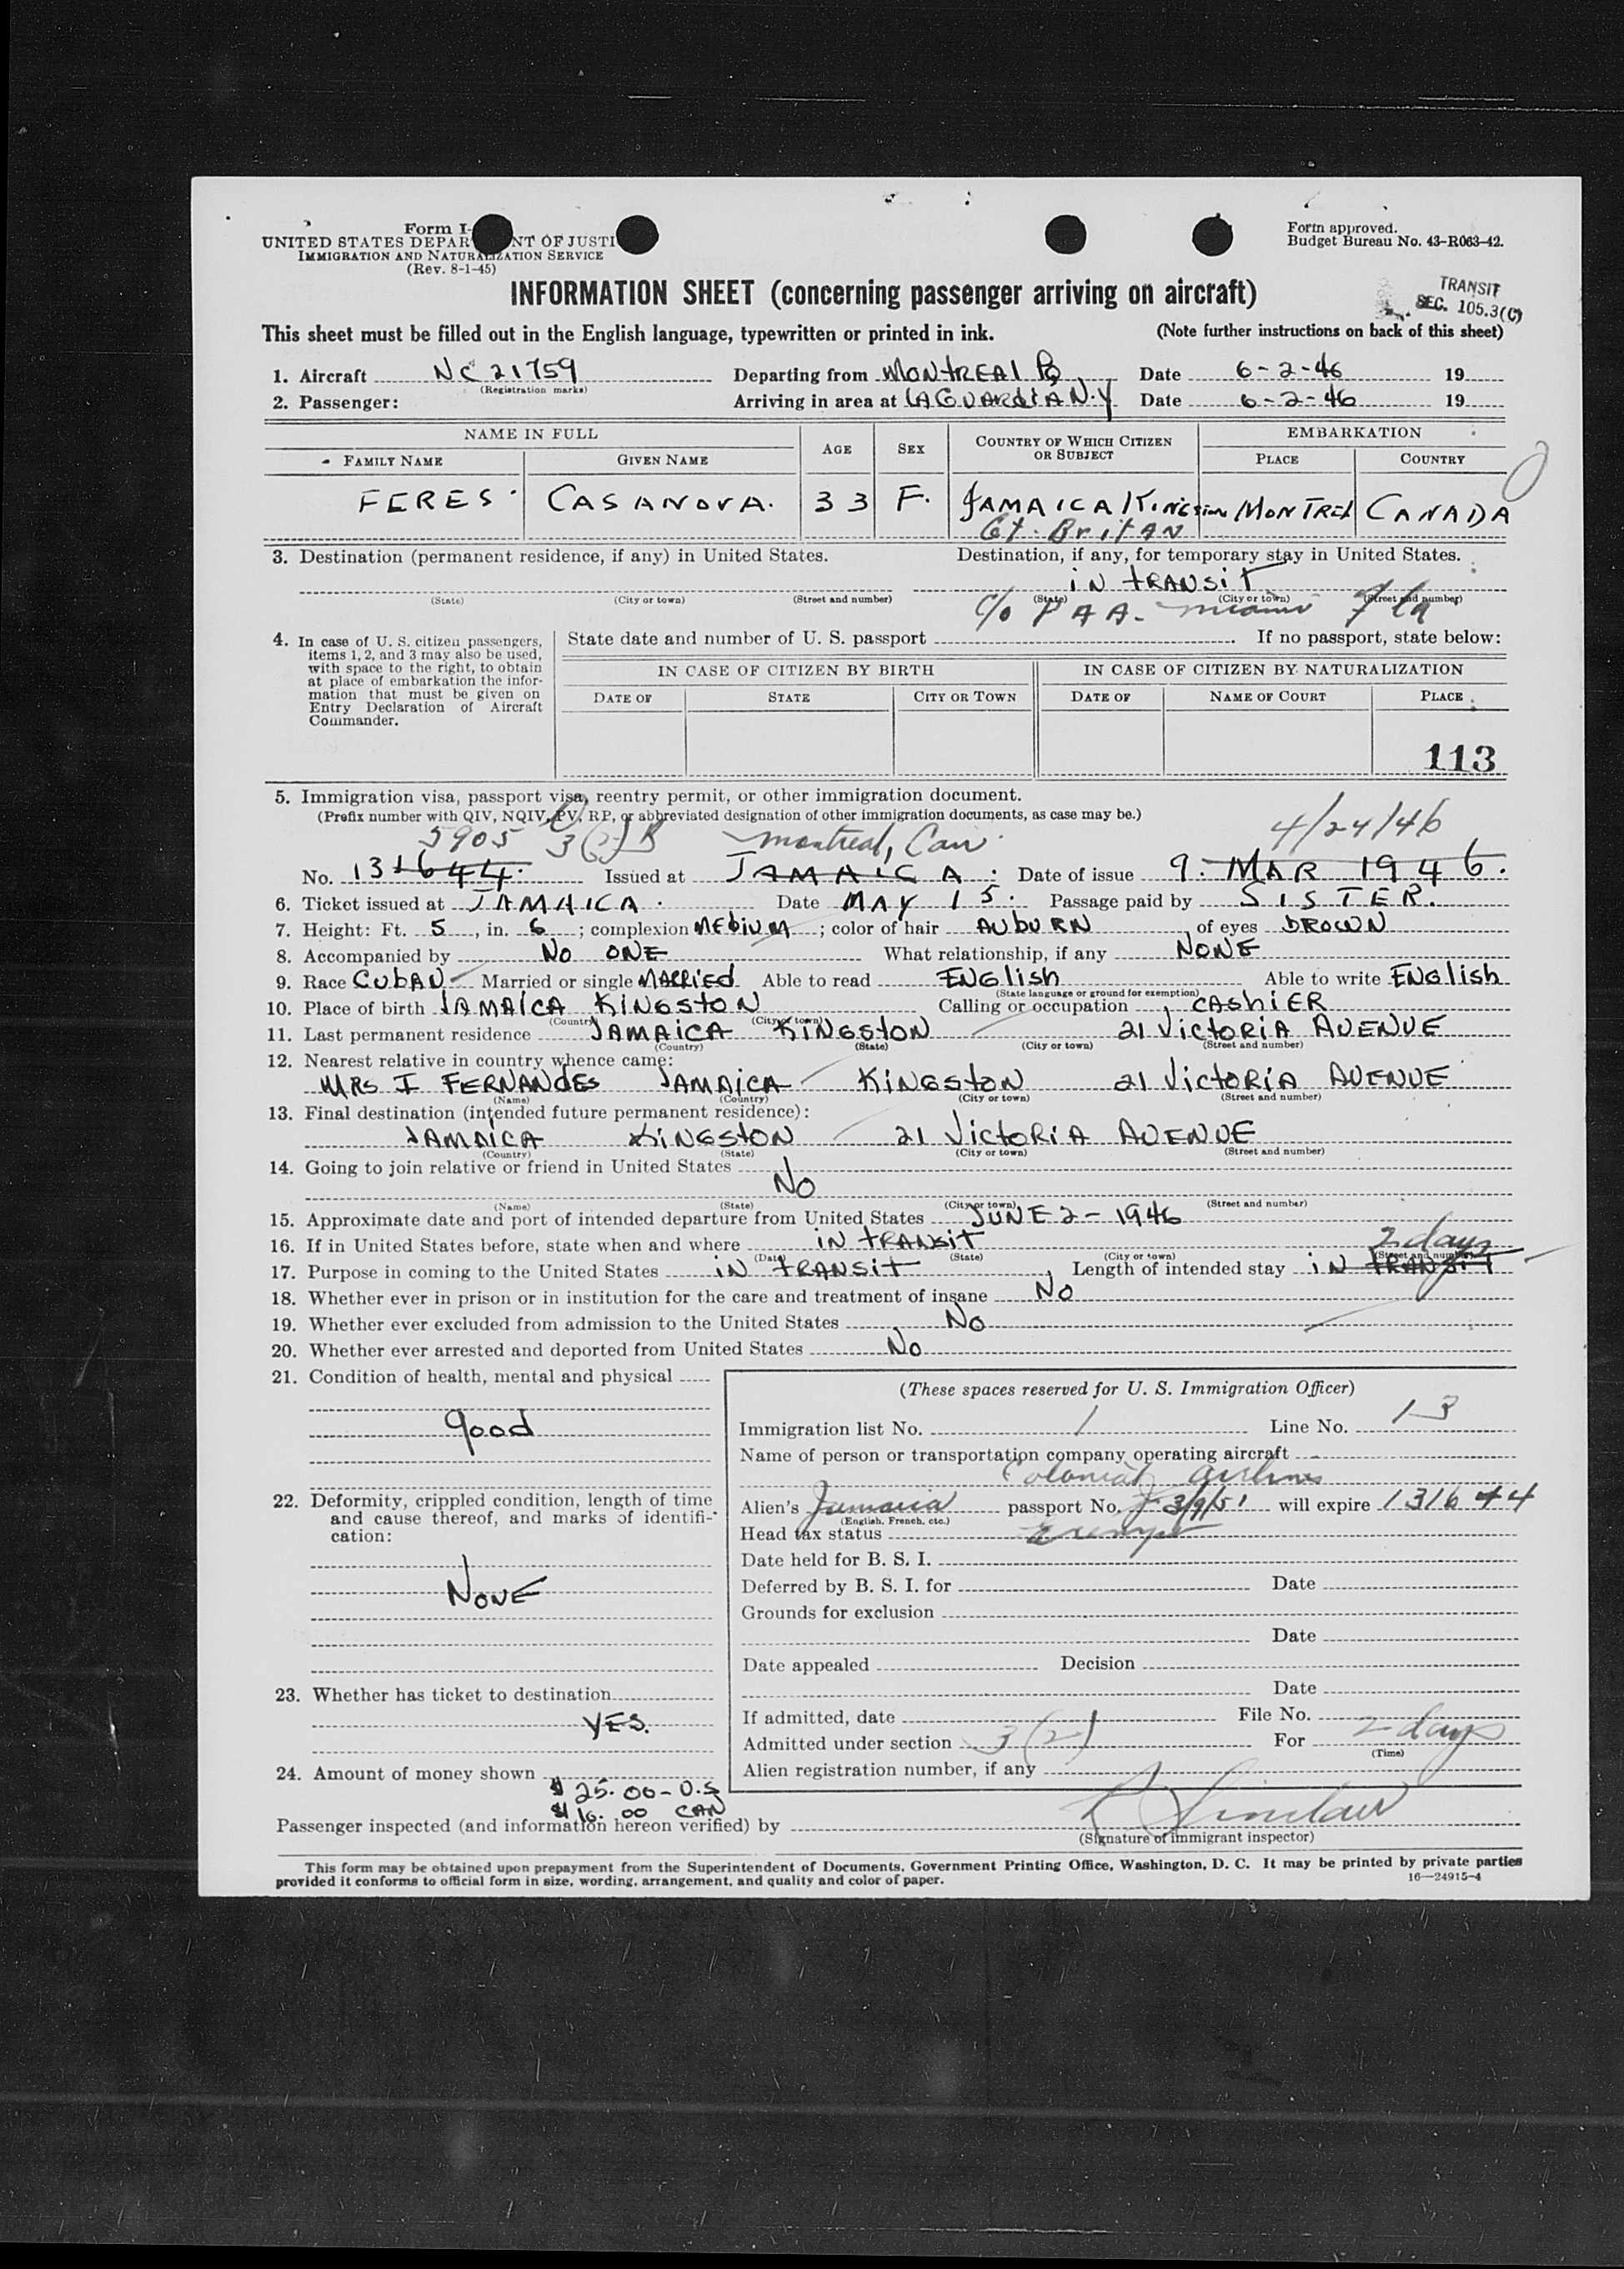 Form I-
UNITED STATES DEPAR NT OF JUSTI
IMMIGRATION AND NATURALIZATION SERVICE
(Rev. 8-1-45)
Form approved.
Budget Bureau No. 43-R063-42.
INFORMATION SHEET (concerning passenger arriving on aircraft)
TRANSIT
SEC. 105.3(C)
This sheet must be filled out in the English language, typewritten or printed in ink. (Note further instructions on back of this sheet)
1. Aircraft NC 21759 Departing from MONTREAL PQ Date 6-2-46 19
(Registration marks)
2. Passenger: Arriving in area at LAGUARdIA N.Y Date 6-2-46 19
NAME IN FULL AGE SEX COUNTRY OF WHICH CITIZEN OR SUBJECT EMBARKATION
FAMILY NAME GIVEN NAME PLACE COUNTRY
FERES. CASANOVA. 33 F. JAMAICA KINGSTON MONTREAL CANADA
Gt. BritAN
3. Destination (permanent residence, if any) in United States. Destination, if any, for temporary stay in United States.
iN tRANSiT
(State) (City or town) (Street and number) (State) (City or town) (Street and number)
c/o P A A. Miami Fla
4. In case of U. S. citizen passengers, items 1, 2, and 3 may also be used, with space to the right, to obtain at place of embarkation the information that must be given on Entry Declaration of Aircraft Commander.
State date and number of U. S. passport If no passport, state below:
IN CASE OF CITIZEN BY BIRTH IN CASE OF CITIZEN BY NATURALIZATION
DATE OF STATE CITY OR TOWN DATE OF NAME OF COURT PLACE
113
5. Immigration visa, passport visa, reentry permit, or other immigration document.
(Prefix number with QIV, NQIV, PV, RP, or abbreviated designation of other immigration documents, as case may be.)
5905 3(2) Montreal, Can 4/24/46
No. 131644. Issued at JAMAICA. Date of issue 9. MAR 1946.
6. Ticket issued at JAMAICA. Date MAY 15. Passage paid by SISTER.
7. Height: Ft. 5, in. 6; complexion MEDIUM; color of hair AUbURN, of eyes BROWN
8. Accompanied by No ONE What relationship, if any NONE
9. Race CubAN Married or single MARRiEd Able to read ENGlish Able to write ENGlish
(State language or ground for exemption)
10. Place of birth JAMAiCA KiNGStON Calling or occupation CAShiER
(Country) (City or town)
11. Last permanent residence JAMAiCA KiNGStON 21 VictORiA AVENUE
(Country) (State) (City or town) (Street and number)
12. Nearest relative in country whence came:
MRS I FERNANdES JAMAiCA KiNGStON 21 VictORiA AVENUE
(Name) (Country) (City or town) (Street and number)
13. Final destination (intended future permanent residence):
JAMAiCA KiNGStON 21 VictORiA AVENUE
(Country) (State) (City or town) (Street and number)
14. Going to join relative or friend in United States
No
(Name) (State) (City or town) (Street and number)
15. Approximate date and port of intended departure from United States JUNE 2 - 1946
16. If in United States before, state when and where iN tRANSit
(Date) (State) (City or town) (Street and number)
2 days
17. Purpose in coming to the United States iN tRANSit, Length of intended stay iN tRANSiT
18. Whether ever in prison or in institution for the care and treatment of insane No
19. Whether ever excluded from admission to the United States No
20. Whether ever arrested and deported from United States No
21. Condition of health, mental and physical
good
22. Deformity, crippled condition, length of time and cause thereof, and marks of identification:
NONE
23. Whether has ticket to destination
YES.
24. Amount of money shown
$ 25.00 - U.S
$ 10.00 CAN
(These spaces reserved for U. S. Immigration Officer)
Immigration list No. 1 Line No. 13
Name of person or transportation company operating aircraft
Colonial Airlines
Alien's Jamaica passport No. 3/9/51 will expire 131644
(English, French, etc.)
Head tax status Exempt
Date held for B. S. I.
Deferred by B. S. I. for Date
Grounds for exclusion
Date
Date appealed Decision
Date
If admitted, date File No.
Admitted under section 3(2) For 2 days
(Time)
Alien registration number, if any
Passenger inspected (and information hereon verified) by R Sinclair
(Signature of immigrant inspector)
This form may be obtained upon prepayment from the Superintendent of Documents, Government Printing Office, Washington, D. C. It may be printed by private parties
provided it conforms to official form in size, wording, arrangement, and quality and color of paper. 16—24915-4